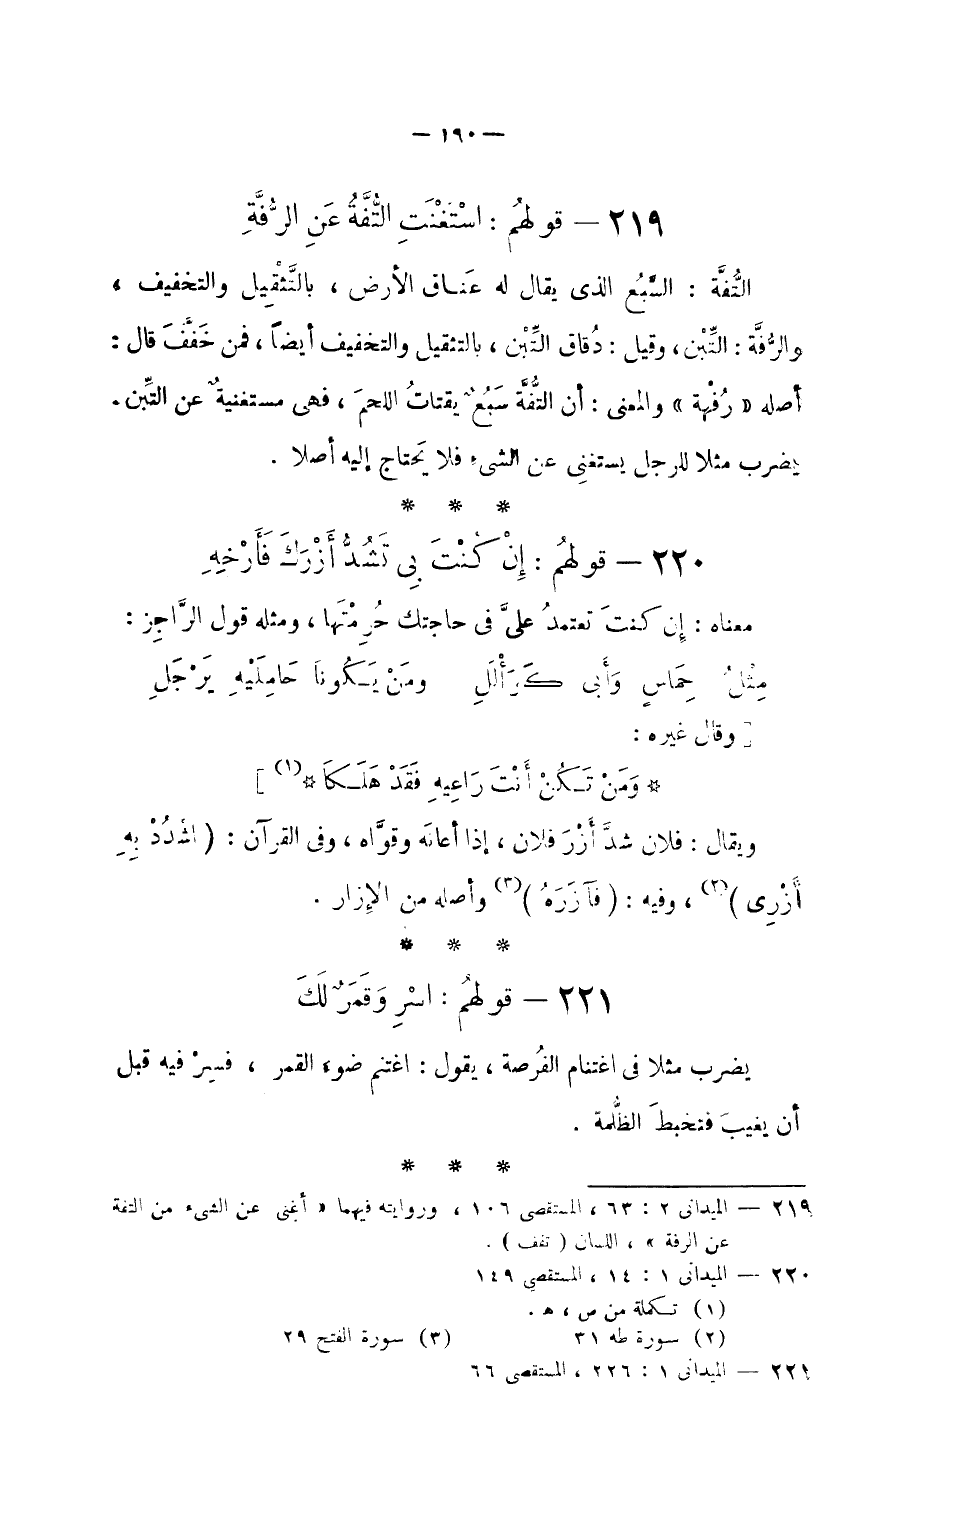 — ١٩٠ —
٢١٩ — قولهُم : اسْتَغْنَتِ التُّفَّةُ عَنِ الرُّفَّةِ
التُّفَّة : السَّبُع الذى يقال له عَنـاق الأرض ، بالتَّثْقِيل والتخفيف ،
والرُّفَّة : التِّبْن ، وقيل : دُقاق التِّبْن ، بالتثقيل والتخفيف أيضاً ، فمن خَفَّفَ قال :
أصله « رُفْهة » والمعنى : أن التُّفَّة سَبُعٌ يقتاتُ اللحمَ ، فهى مستغنيةٌ عن التِّبن .
يضرب مثلا للرجل يستغنِى عن الشىء فلا يَحتاج إليه أصلا .
* * *
٢٢٠ — قولهُم : إِنْ كُنْتَ بِى تَشُدُّ أَزْرَكَ فَأَرْخِهِ
معناه : إِن كنتَ تعتمدُ علىَّ فى حاجتك حُرِمْتَها ، ومثله قول الرَّاجِز :
مِثْلُ حِمَاسٍ وَأَبِى كَرَأْلَلِ ومَنْ يَـكُونَا حَامِلَيْهِ يَرْجَلِ
[ وقال غيره :
* وَمَنْ تَـكُنْ أَنْتَ رَاعِيهِ فَقَدْ هَلَـكَا *(١) ]
ويقال : فلان شدَّ أَزْرَ فلان ، إذا أعانَه وقوَّاه ، وفى القرآن : ( اشْدُدْ بِهِ
أَزْرِى )(٢) ، وفيه : ( فَآزَرَهُ )(٣) وأصله من الإِزار .
* * *
٢٢١ — قولهُم : اسْرِ وَقَمَرٌ لَكَ
يضرب مثلا فى اغتنام الفُرصة ، يقول : اغتنم ضوء القمر ، فسِرْ فيه قبل
أن يغيبَ فتخبطَ الظُّلمة .
* * *
٢١٩ — الميدانى ٢ : ٦٣ ، المستقصى ١٠٦ ، وروايته فيهما « أغنى عن الشىء من التفة
عن الرفة » ، اللسان ( تفف ) .
٢٢٠ — الميدانى ١ : ١٤ ، المستقصى ١٤٩
(١) تـكملة من ص ، هـ .
(٢) سورة طه ٣١ (٣) سورة الفتح ٢٩
٢٢١ — الميدانى ١ : ٢٢٦ ، المستقصى ٦٦